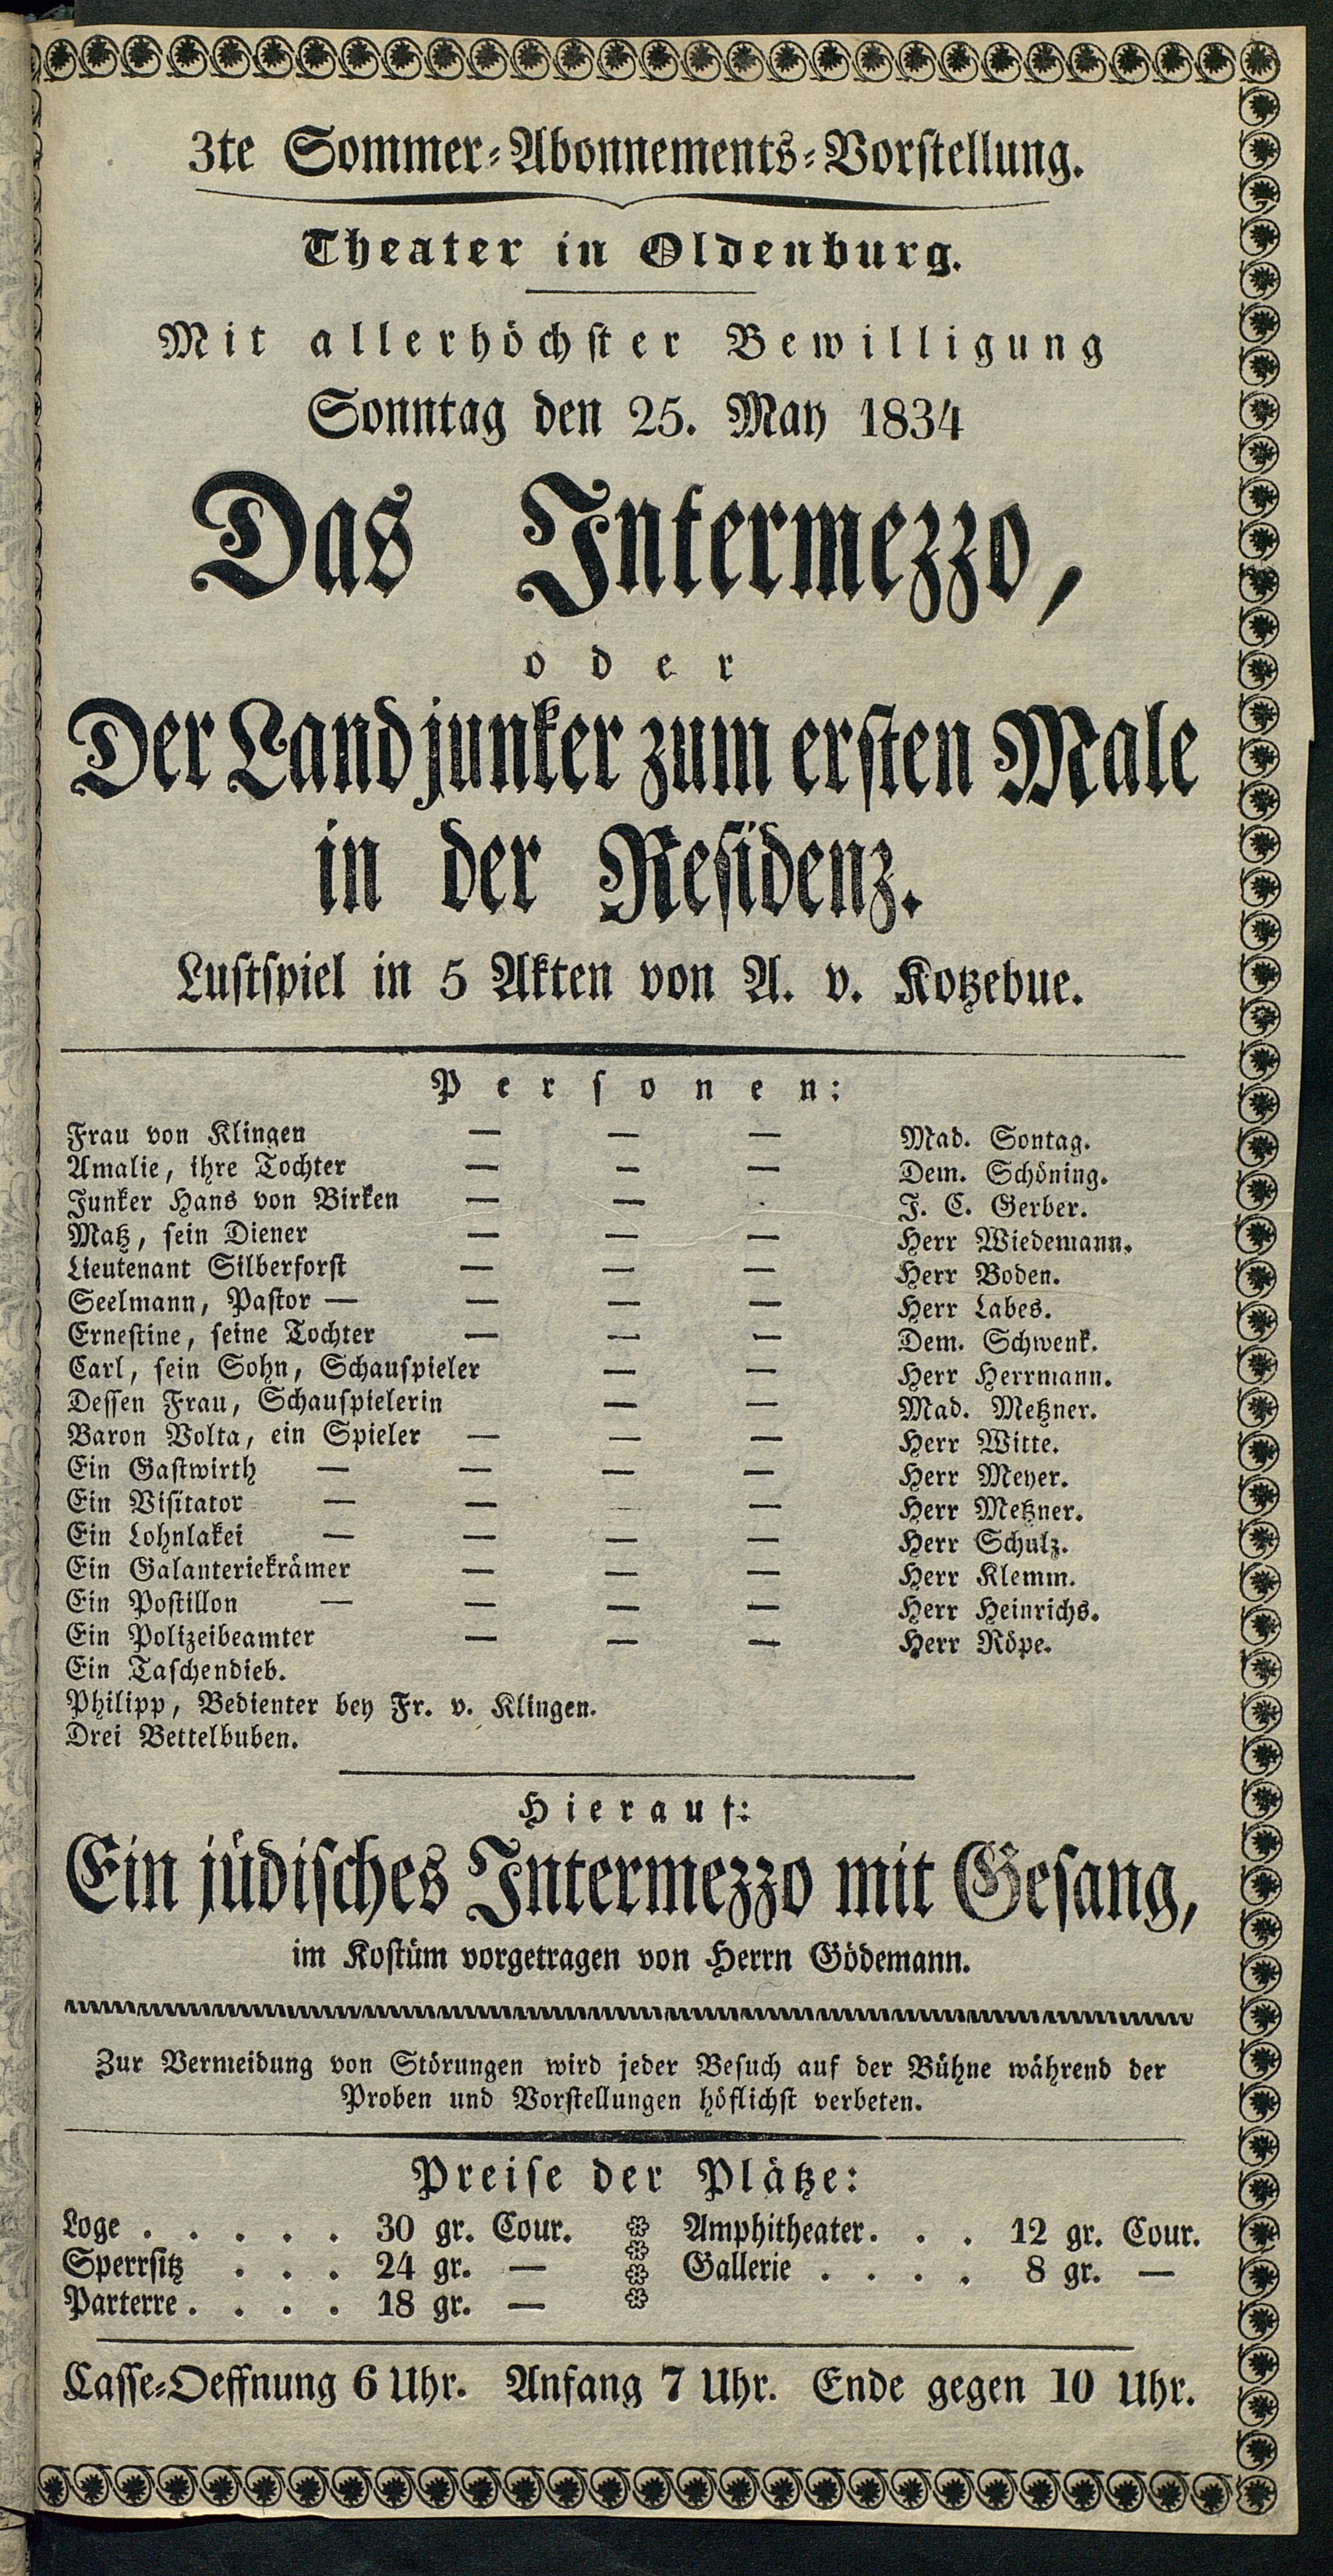 3te Sommer-Abonnements-Vorstellung.
Theater in Oldenburg.
Mit allerhöchster Bewilligung
Sonntag den 25. May 1834
Das Intermezzo,
oder
Der Landjunker zum ersten Male
in der Residenz.
Lustspiel in 5 Akten von A. v. Kotzebue.
Personen:
Frau von Klingen — — — Mad. Sontag.
Amalie, ihre Tochter — — — Dem. Schöning.
Junker Hans von Birken — — J. C. Gerber.
Matz, sein Diener — — — Herr Wiedemann.
Lieutenant Silberforst — — — Herr Boden.
Seelmann, Pastor — — — — Herr Labes.
Ernestine, seine Tochter — — — Dem. Schwenk.
Carl, sein Sohn, Schauspieler — — Herr Herrmann.
Dessen Frau, Schauspielerin — — Mad. Metzner.
Baron Volta, ein Spieler — — — Herr Witte.
Ein Gastwirth — — — — Herr Meyer.
Ein Visitator — — — — Herr Metzner.
Ein Lohnlakei — — — — Herr Schulz.
Ein Galanteriekrämer — — — Herr Klemm.
Ein Postillon — — — — Herr Heinrichs.
Ein Polizeibeamter — — — Herr Röpe.
Ein Taschendieb.
Philipp, Bedienter bey Fr. v. Klingen.
Drei Bettelbuben.
Hierauf:
Ein jüdisches Intermezzo mit Gesang,
im Kostüm vorgetragen von Herrn Gödemann.
Zur Vermeidung von Störungen wird jeder Besuch auf der Bühne während der
Proben und Vorstellungen höflichst verbeten.
Preise der Plätze:
Loge . . . . . 30 gr. Cour. Amphitheater. . . 12 gr. Cour.
Sperrsitz . . . 24 gr. — Gallerie . . . . 8 gr. —
Parterre. . . . 18 gr. —
Casse-Oeffnung 6 Uhr. Anfang 7 Uhr. Ende gegen 10 Uhr.